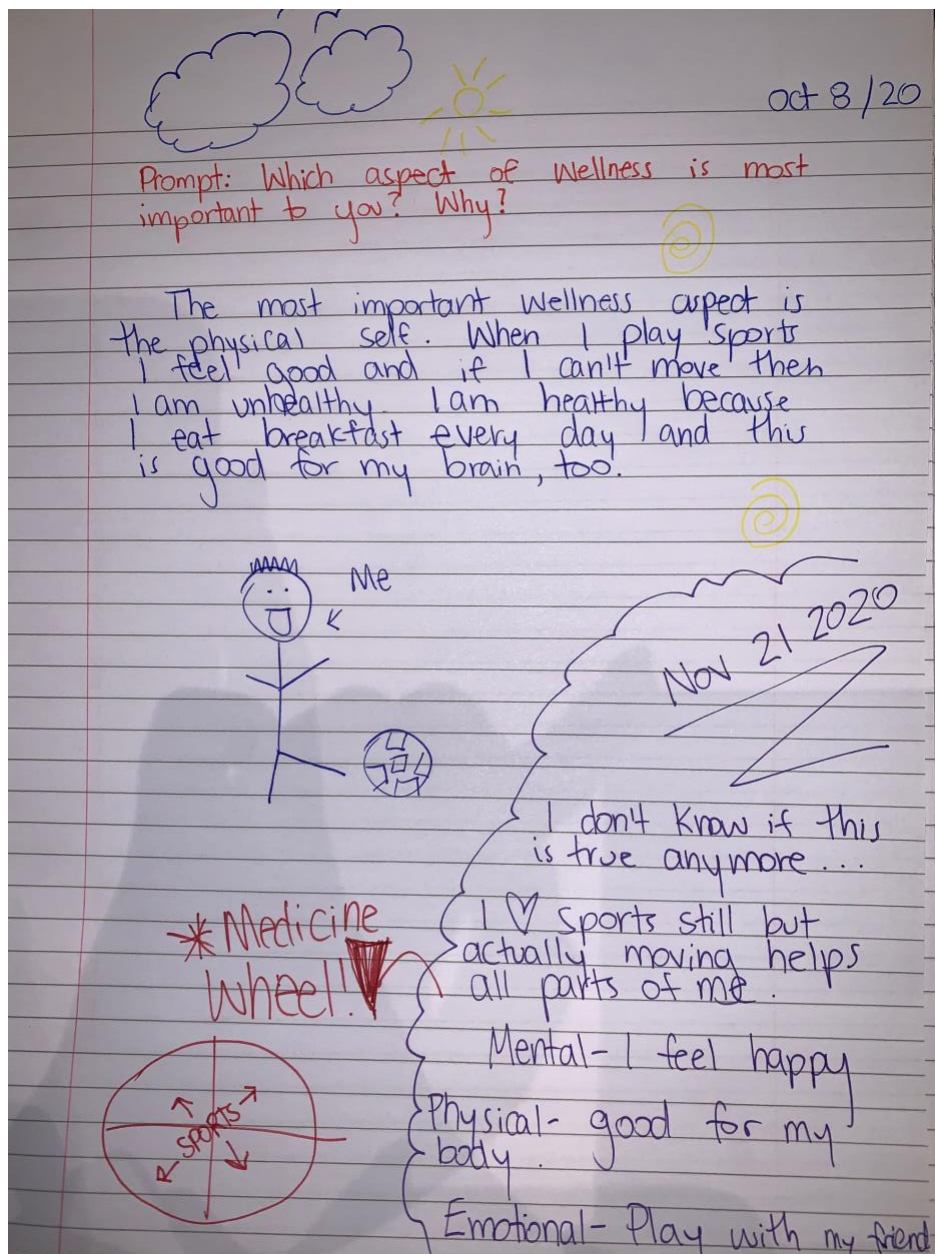 oct 8/20
Prompt: Which aspect of wellness is most
important to you? Why?
The most important wellness aspect is
the physical self. When I play sports
I feel good and if I can't move then
I am unhealthy. I am healthy because
I eat breakfast every day and this
is good for my brain, too.
Me
Nov 21 2020
I don't know if this
is true anymore...
I ♡ sports still but
actually moving helps
all parts of me.
*Medicine
Wheel!
SPORTS
Mental- I feel happy
Physical- good for my
body.
Emotional- Play with my friend